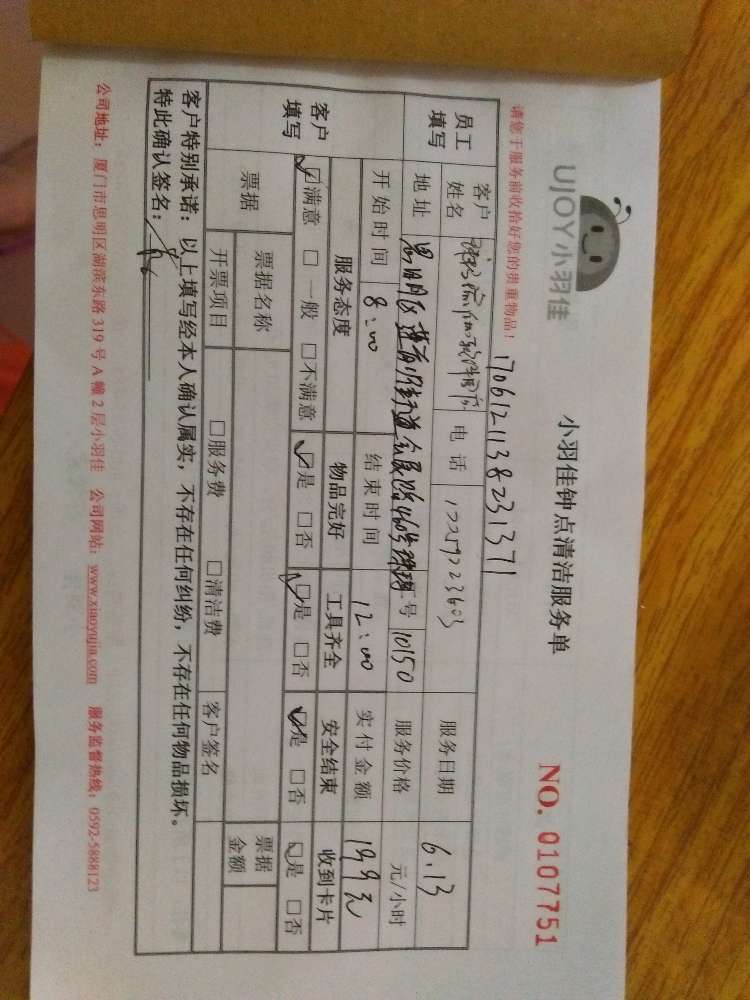 UJOY小羽佳
小羽佳钟点清洁服务单
NO. 0107751
请您于服务前收拾好您的贵重物品！
1706121138231371
员工填写
客户姓名
电话
服务日期 6.13
地址 思明区莲前街道会展路460号
工号 10150
服务价格 元/小时
开始时间 8:00
结束时间 12:00
实付金额 199元
客户填写
服务态度 物品完好 工具齐全 安全结束 收到卡片
☑满意 □一般 □不满意 ☑是 □否 ☑是 □否 ☑是 □否 ☑是 □否
票据 票据名称 票据金额
开票项目 □服务费 □清洁费 客户签名
客户特别承诺：以上填写经本人确认属实，不存在任何纠纷，不存在任何物品损坏。
特此确认签名：
公司地址：厦门市思明区湖滨东路 319 号 A 幢 2 层小羽佳 公司网站：www.xiaoyujia.com 服务监督热线：0592-5888123